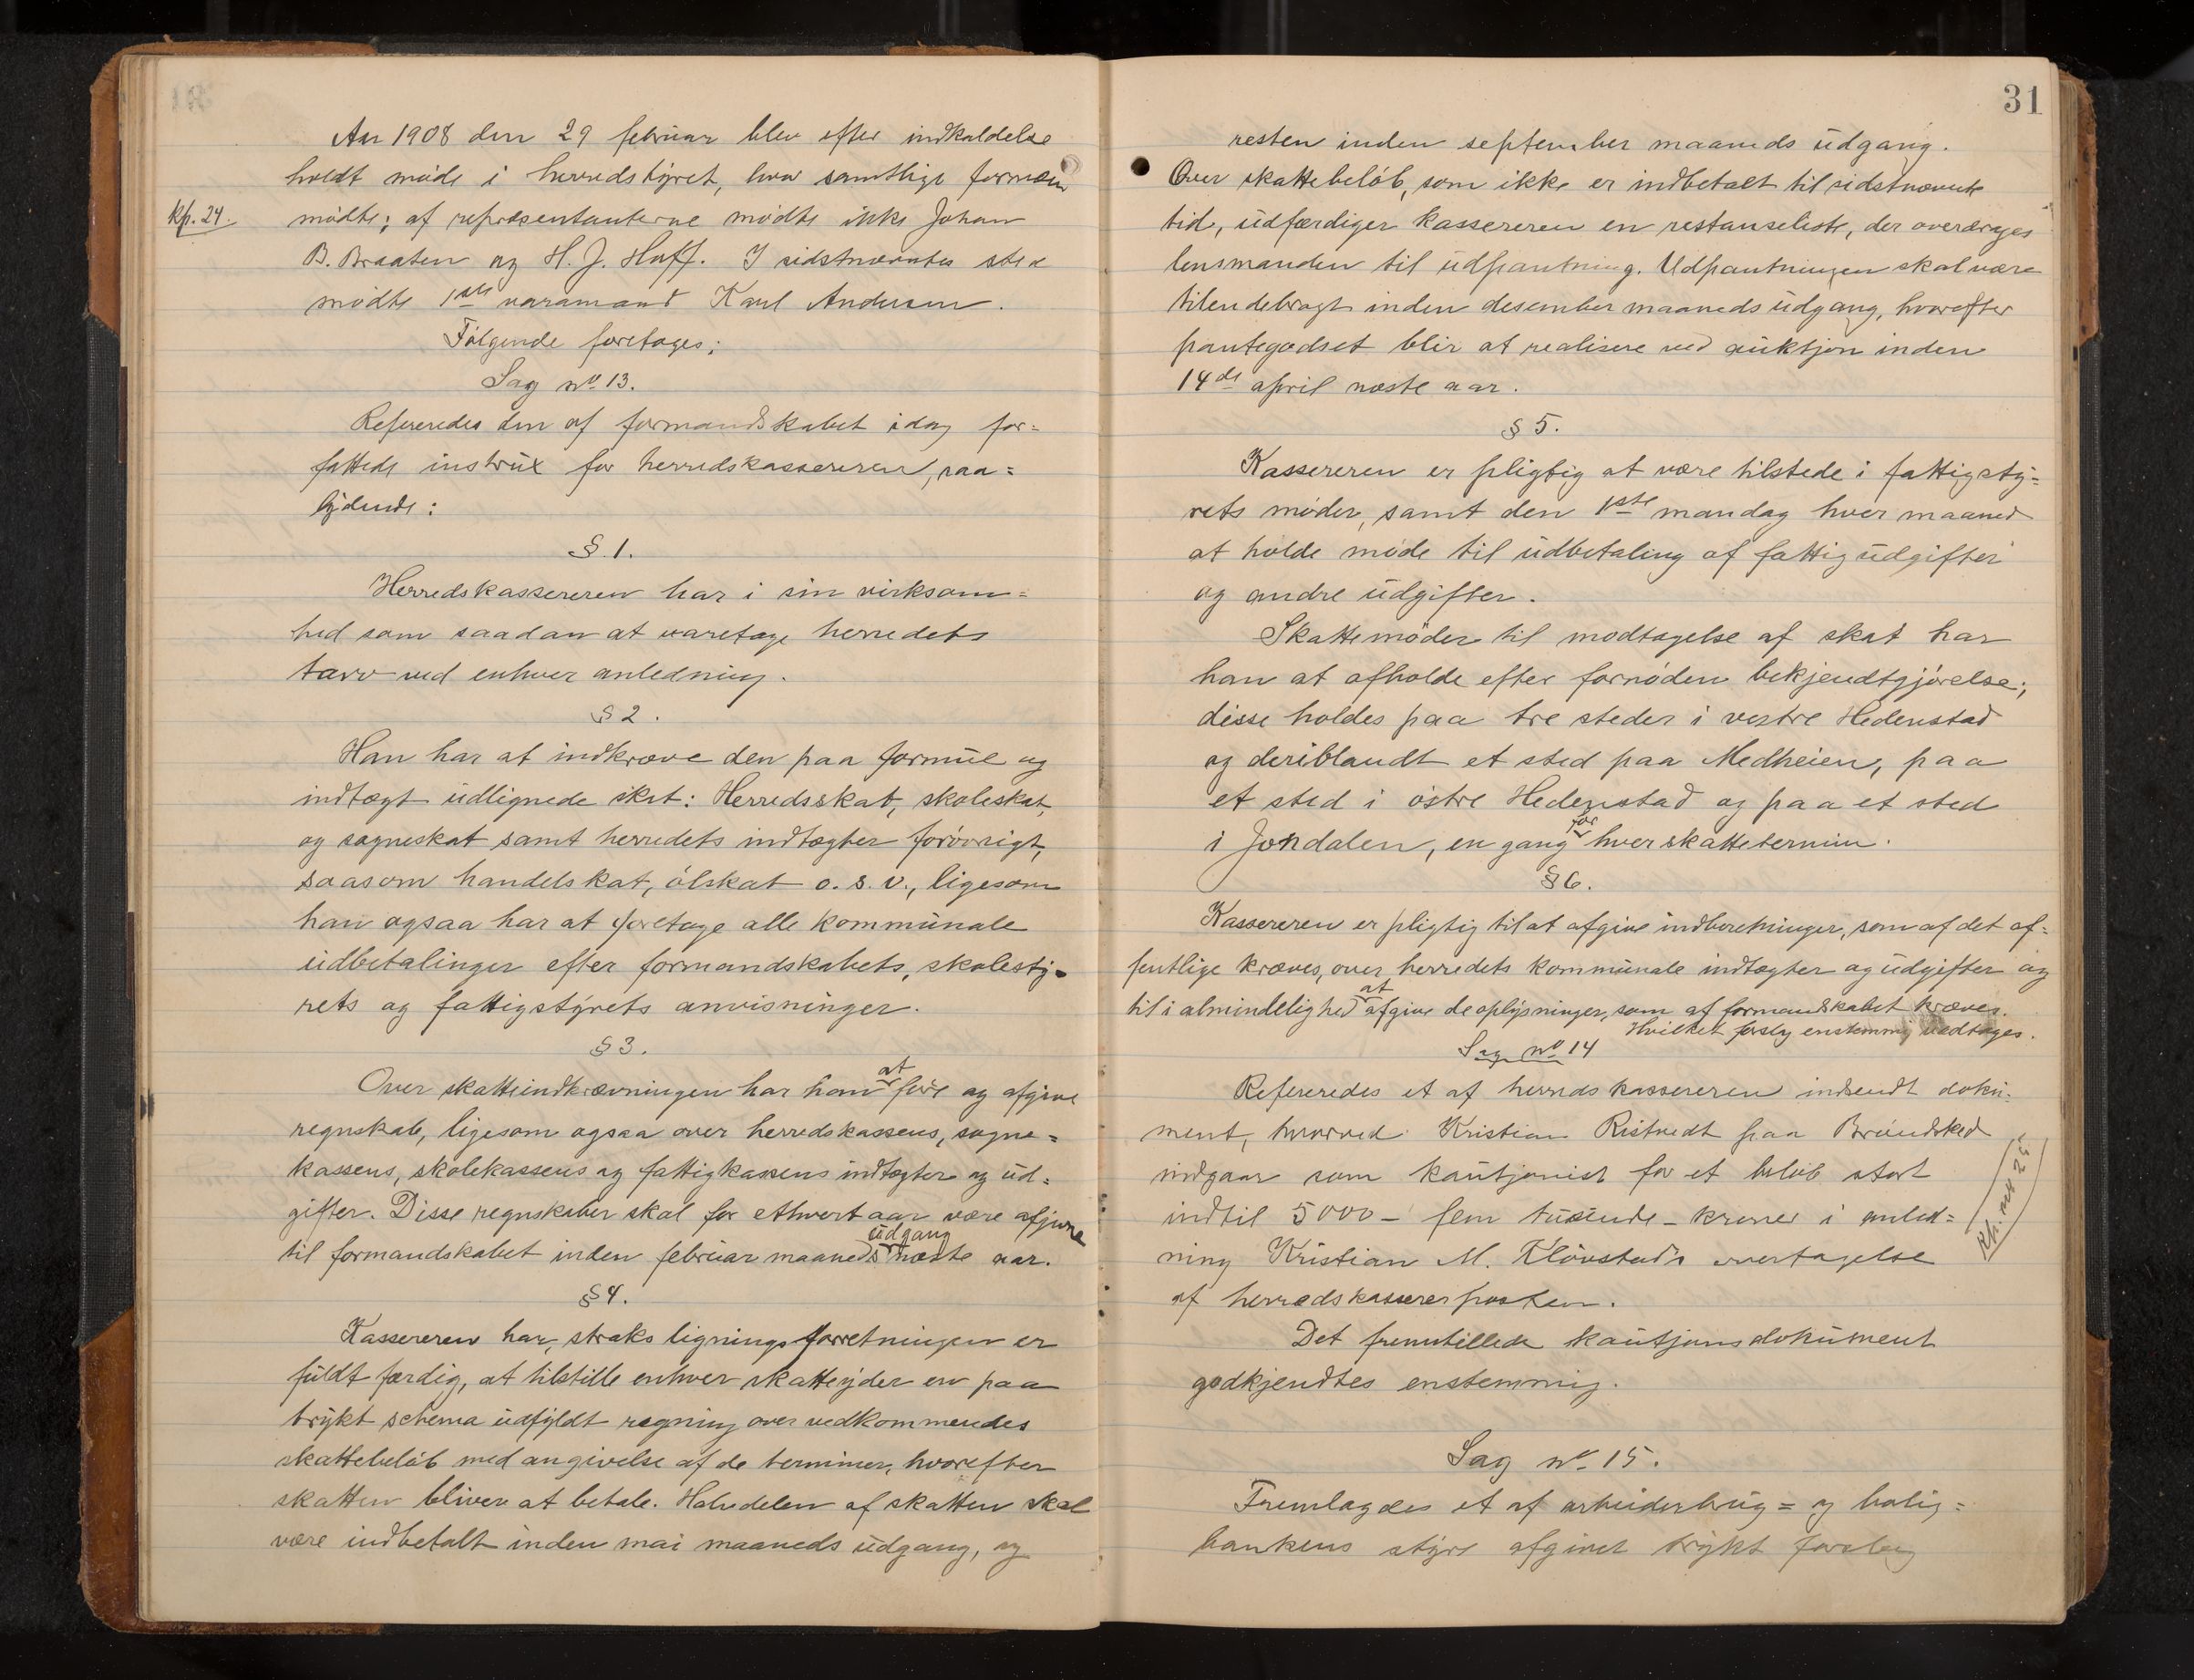 Aar 1908 den 29 februar blev efter indkaldelse
holdt møde i herredstyret, hvor samtlige formænd
Kp. 24.
mødte; af repræsentanterne mødte ikke Johan
B. Braaten og H. J. Hoff. I sidstnævntes sted
mødte 1ste varamand Karl Andersen.
Følgende foretages:
Sag no 13.
Refereredes den af formandskabet idag for=
fattede instrux for herredskassereren, saa=
lydende:
§ 1.
Herredskassereren har i sin virksom=
hed som saadan at varetage herredets
tarv ved enhver anledning.
§ 2.
Han har at indkræve den paa formue og
indtægt udlignede skat: Herredsskat, skoleskat,
og sogneskat samt herredets indtægter forøvrigt,
saasom handelskat, ølskat o. s. v., ligesom
han ogsaa har at foretage alle kommunale
udbetalinger efter formandskabets, skolesty=
rets og fattigstyrets anvisninger.
§ 3.
Over skatteindkrævningen har han at føre og afgive
regnskab, ligesom ogsaa over herredskassens, sogne=
kassens, skolekassens og fattigkassens indtægter og ud=
gifter. Disse regnskaber skal for ethvert aar være afgivne
til formandskabet inden februar maaneds udgang næste aar.
§ 4.
Kassereren har, straks ligningsforretningen er
fuldt færdig, at tilstille enhver skatteyder en paa
trykt schema udfyldt regning over vedkommendes
skattebeløb med angivelse af de terminer, hvorefter
skatten bliver at betale. Halvdelen af skatten skal
være indbetalt inden mai maaneds udgang, og
31
resten inden september maaneds udgang.
Over skattebeløb, som ikke er indbetalt til sidstnævnte
tid, udfærdiger kassereren en restanseliste, der overdrages
lensmanden til udpantning. Udpantningen skal være
tilendebragt inden desember maaneds udgang, hvorefter
pantegodset blir at realisere ved auktjon inden
14de april næste aar.
§ 5.
Kassereren er pligtig at være tilstede i fattigsty=
rets møder, samt den 1ste mandag hver maaned
at holde møde til udbetaling af fattigudgifter
og andre udgifter.
Skattemøder til modtagelse af skat har
han at afholde efter fornøden bekjendtgjørelse;
disse holdes paa tre steder i vestre Hedenstad
og deriblandt et sted paa Medheien, paa
et sted i østre Hedenstad og paa et sted
i Jondalen, en gang for hver skattetermin.
§ 6.
Kassereren er pligtig til at afgive indberetninger, som af det of=
fentlige kræves, over herredets kommunale indtægter og udgifter og
til i almindelighed at afgive de oplysninger, som af formandskabet kræves.
Hvilket forslag enstemmig vedtages.
Sag no 14
Refereredes et af herredskassereren indsendt doku=
ment, hvorved Kristian Ristvedt paa
indgaar som kautjonist for et beløb stort
indtil 5000 – fem tusende – kroner i anled=
ning Kristian M. Kløvstads overtagelse
af herredskassererposten.
Det fremstillede kautjonsdokument
godkjendtes enstemmig.
Sag no 15.
Fremlagdes et af arbeiderbrug= og bolig=
bankens styre afgivet trykt forslag